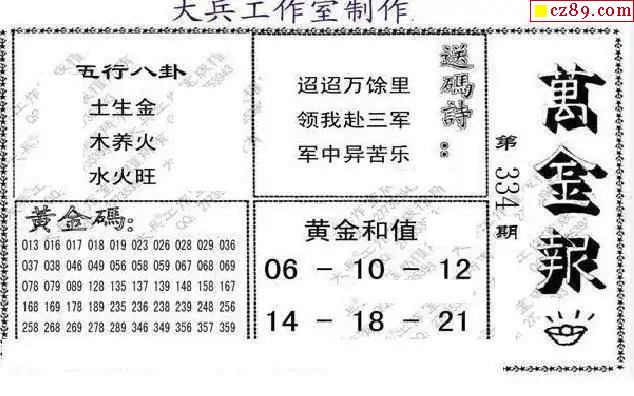 大兵工作室制作
cz89.com
五行八卦
土生金
木养火
水火旺
送碼詩：
迢迢万馀里
领我赴三军
军中异苦乐
萬金報
第334期
黄金碼：
013 016 017 018 019 023 026 028 029 036
037 038 046 049 056 058 059 067 068 069
078 079 089 128 135 137 139 148 158 167
168 169 178 189 235 236 238 239 248 256
258 268 269 278 289 349 346 356 357 359
黄金和值
06 - 10 - 12
14 - 18 - 21